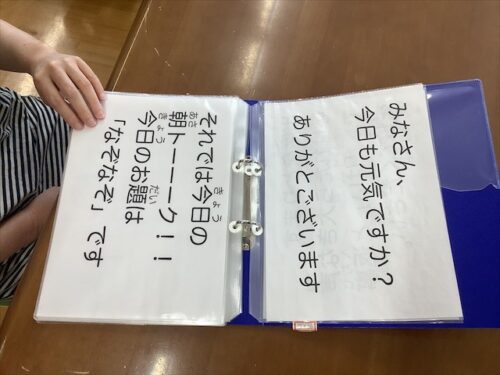 みなさん、
今日も元気ですか？
ありがとございます
きょう
それでは今日の
あさ
朝トーーーク！！
きょう だい
今日のお題は
「なぞなぞ」です